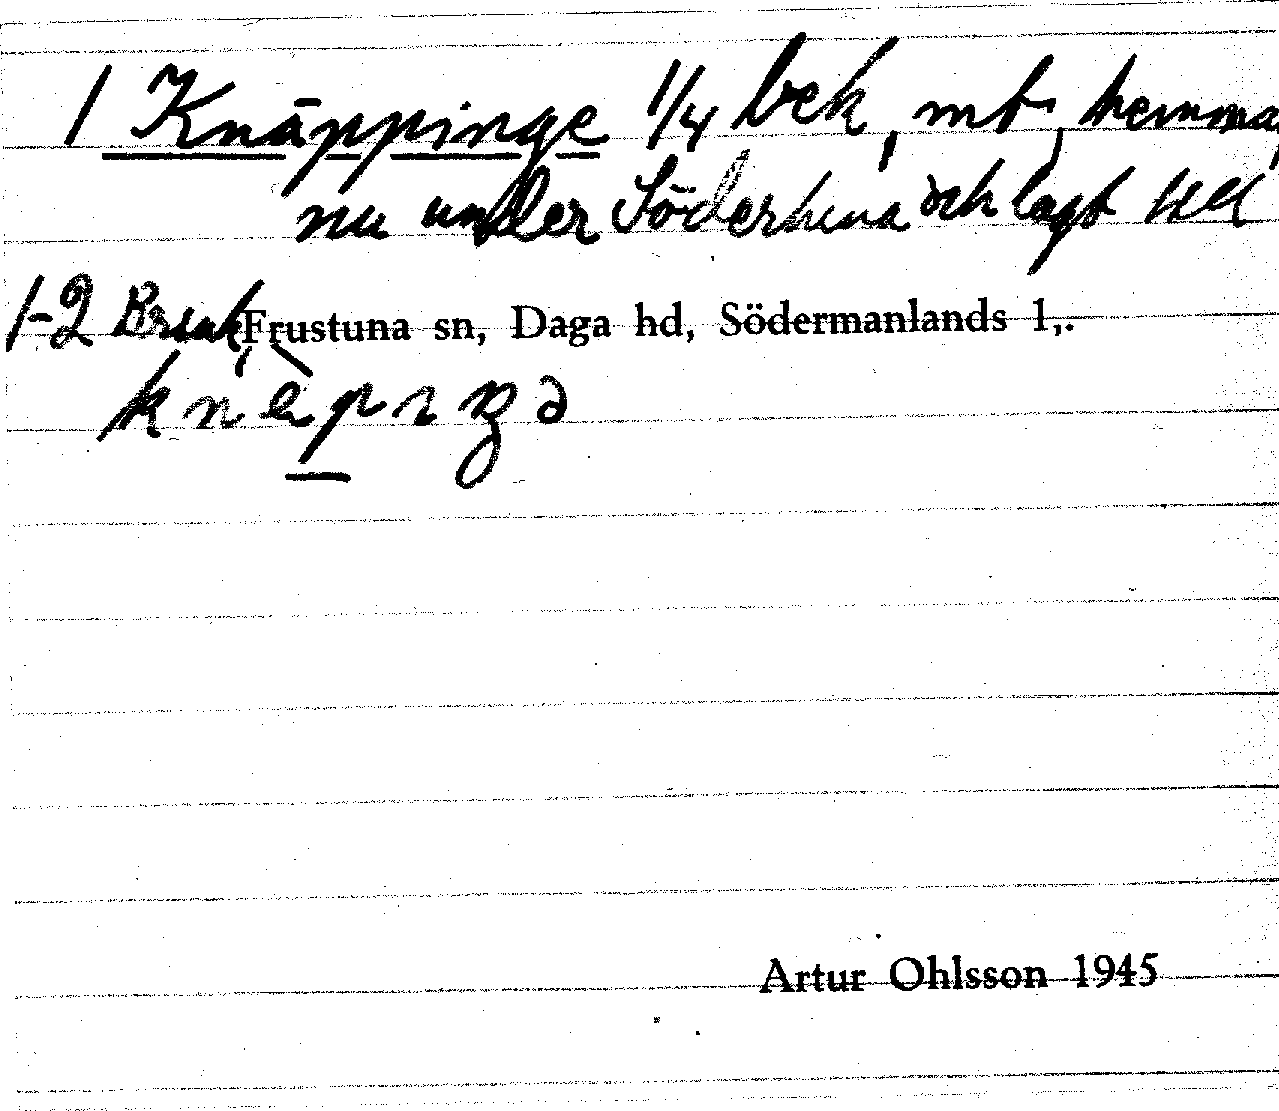 1 Knäppinge 1/4 bek, mt, hemma,
nu under Södertuna och lagt till
1-2 Bruk, Frustuna sn, Daga hd, Södermanlands l,.
knèpıŋə
Artur Ohlsson 1945